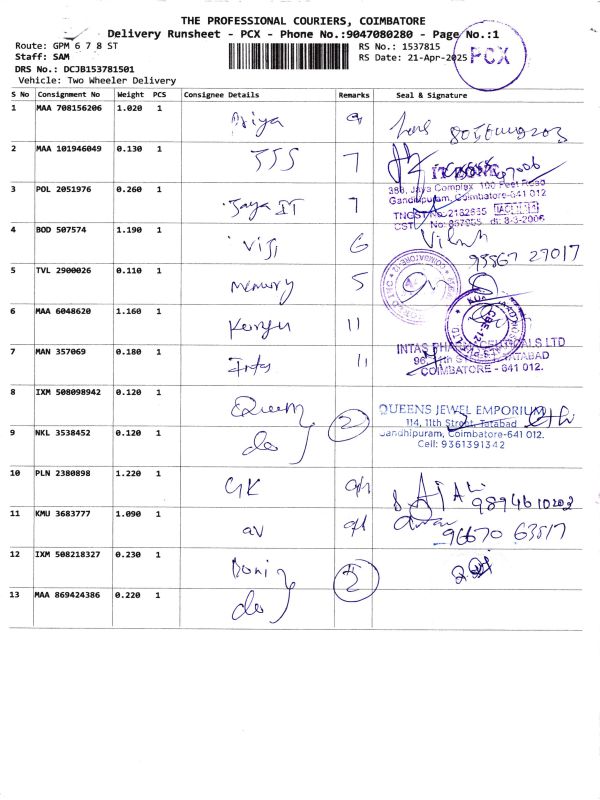 THE PROFESSIONAL COURIERS, COIMBATORE
Delivery Runsheet - PCX - Phone No.:9047080280 - Page No.:1
Route: GPM 6 7 8 ST
RS No.: 1537815
Staff: SAM
RS Date: 21-Apr-2025
PCX
DRS No.: DCJB153781501
Vehicle: Two Wheeler Delivery
S No Consignment No Weight PCS Consignee Details Remarks Seal & Signature
1 MAA 708156206 1.020 1 Priya
2 MAA 101946049 0.130 1 JJS 7
3 POL 2051976 0.260 1 Jaya IT 7
388, Jaya Complex 100 Feet Road
Gandhipuram, Coimbatore-641 012
4 BOD 507574 1.190 1 Viji 6
99867 27017
5 TVL 2900026 0.110 1 Memury 5
6 MAA 6048620 1.160 1 11
7 MAN 357069 0.180 1 Intas 11
INTAS PHARMACEUTICALS LTD
COIMBATORE - 641 012.
8 IXM 508098942 0.120 1 Queen 2
QUEENS JEWEL EMPORIUM
114, 11th Street, Tatabad
Gandhipuram, Coimbatore-641 012.
Cell: 9361391342
9 NKL 3538452 0.120 1 do
10 PLN 2380898 1.220 1 GK
9894610202
11 KMU 3683777 1.090 1 av
96670 63517
12 IXM 508218327 0.230 1 2
13 MAA 869424386 0.220 1 do